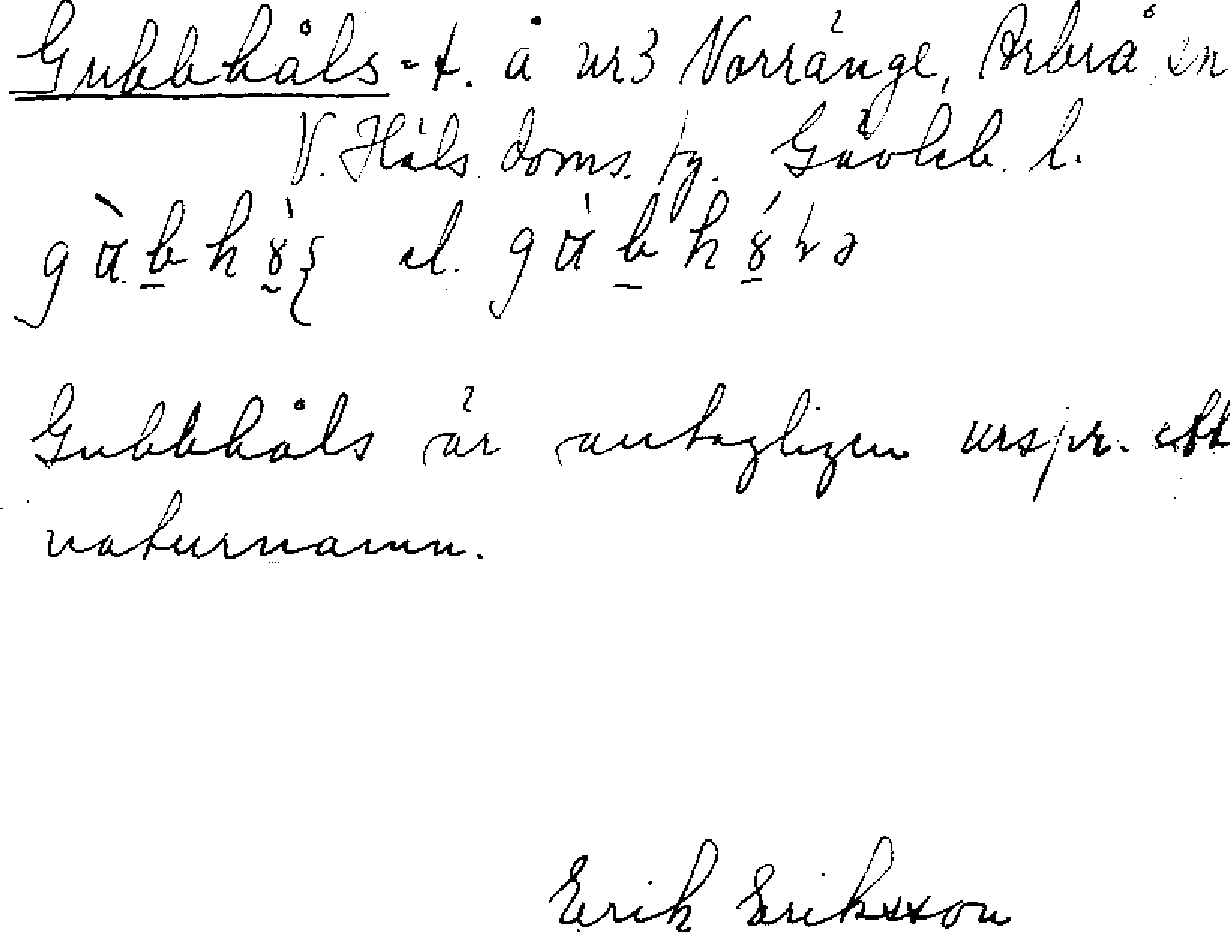 Gubbhåls-t. å nr3 Norränge, Arbrå sn
V. Häls. doms. fg. Gävleb. l.
el.
Gubbhåls är antagligen urspr. ett
naturnamn.
Erik Eriksson